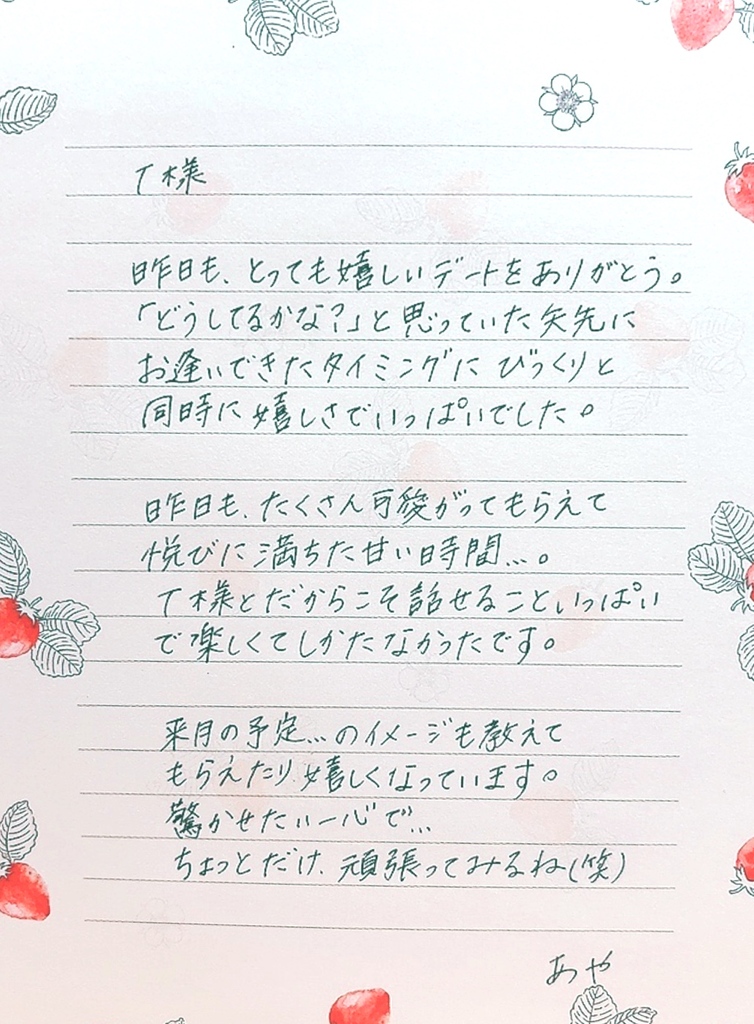 T様
昨日も、とっても嬉しいデートをありがとう。
「どうしてるかな？」と思っていた矢先に
お逢いできたタイミングにびっくりと
同時に嬉しさでいっぱいでした。
昨日も、たくさん可愛がってもらえて
悦びに満ちた甘い時間…。
T様とだからこそ話せることいっぱい
で楽しくてしかたなかったです。
来月の予定…のイメージも教えて
もらえたり嬉しくなっています。
驚かせたい一心で…
ちょっとだけ、頑張ってみるね(笑)
あや